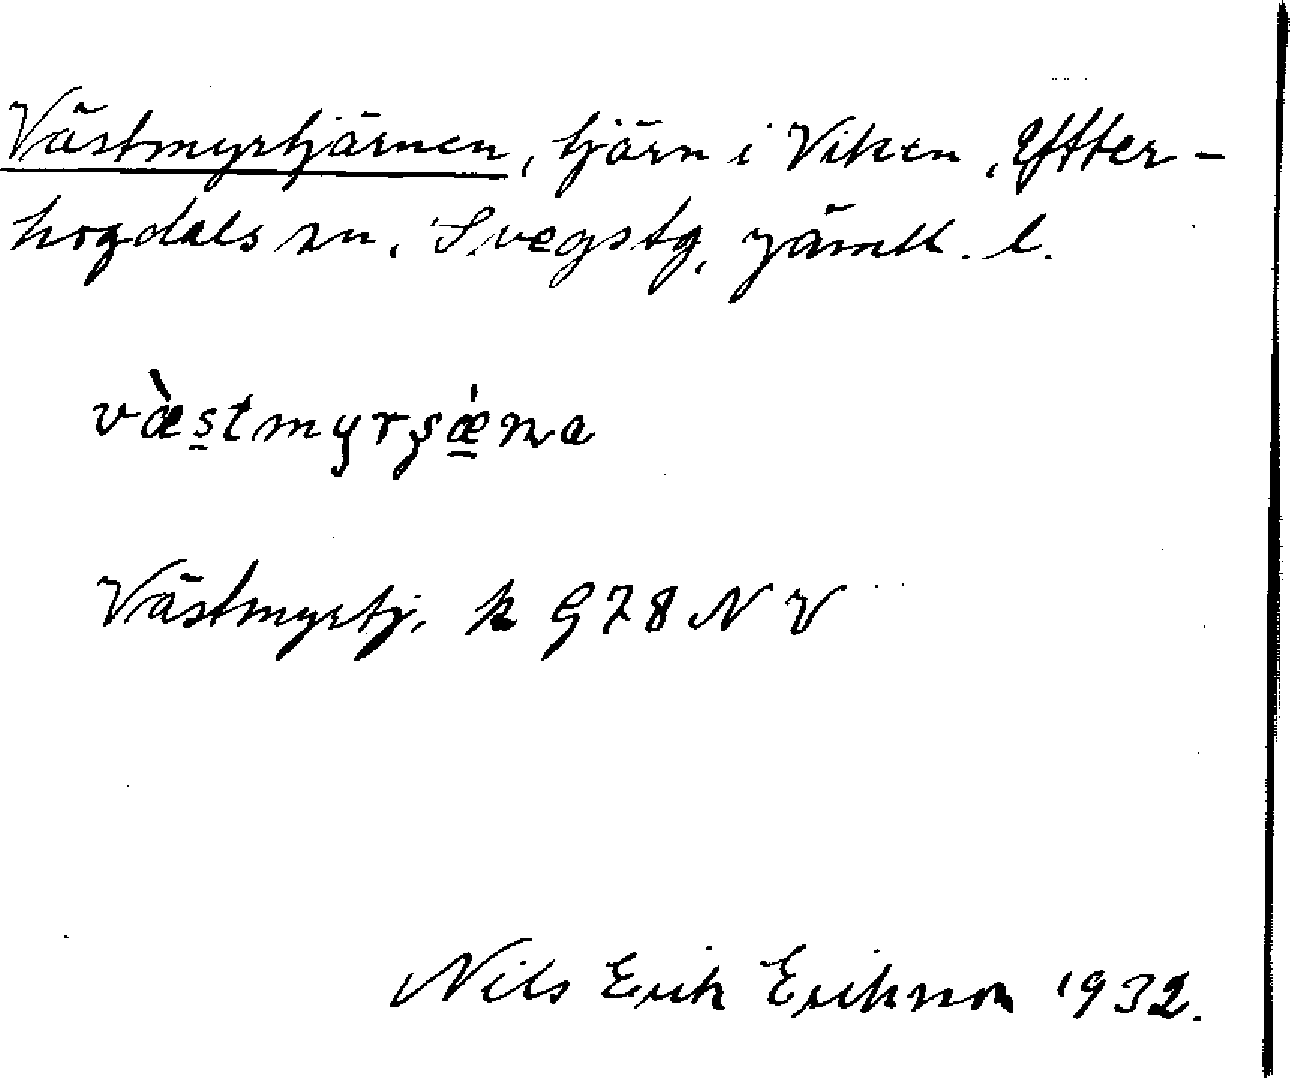 Västmyrtjärnen, tjärn i Viken, Ytter-
hogdals sn, Svegstg, Jämtl. l.
væ̀stmyrʂǽna
Västmyrtj. k G78 NV
Nils Erik Erikson 1932.